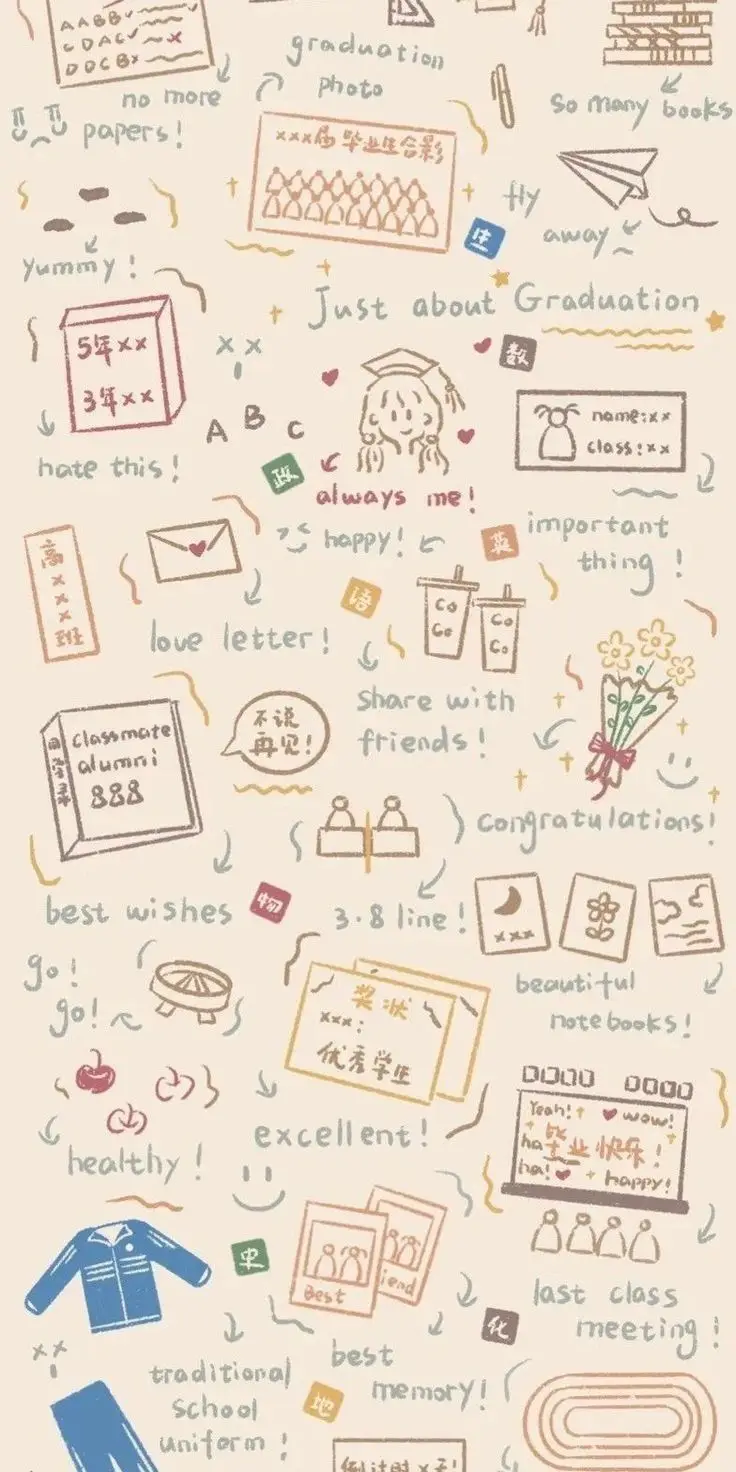 AABB
CDAC
DDCBx
no more
papers!
graduation
photo
xxx届毕业生合影
so many books
fly
away
生
yummy!
Just about Graduation
5年xx
3年xx
hate this!
A B C
数
政
always me!
name:xx
class:xx
important
thing!
happy!
英
语
高
x
x
x
班
love letter!
Co
Co
Co
Co
share with
friends!
classmate
alumni
同学录
不说
再见!
congratulations!
best wishes
物
3.8 line!
xxx
beautiful
notebooks!
go!
go!
奖状
xxx:
优秀学生
excellent!
healthy!
Yeah! wow!
ha 毕业快乐!
ha! happy!
last class
meeting!
史
Best
iend
化
best
memory!
traditional
school
uniform!
地
倒计时x天!